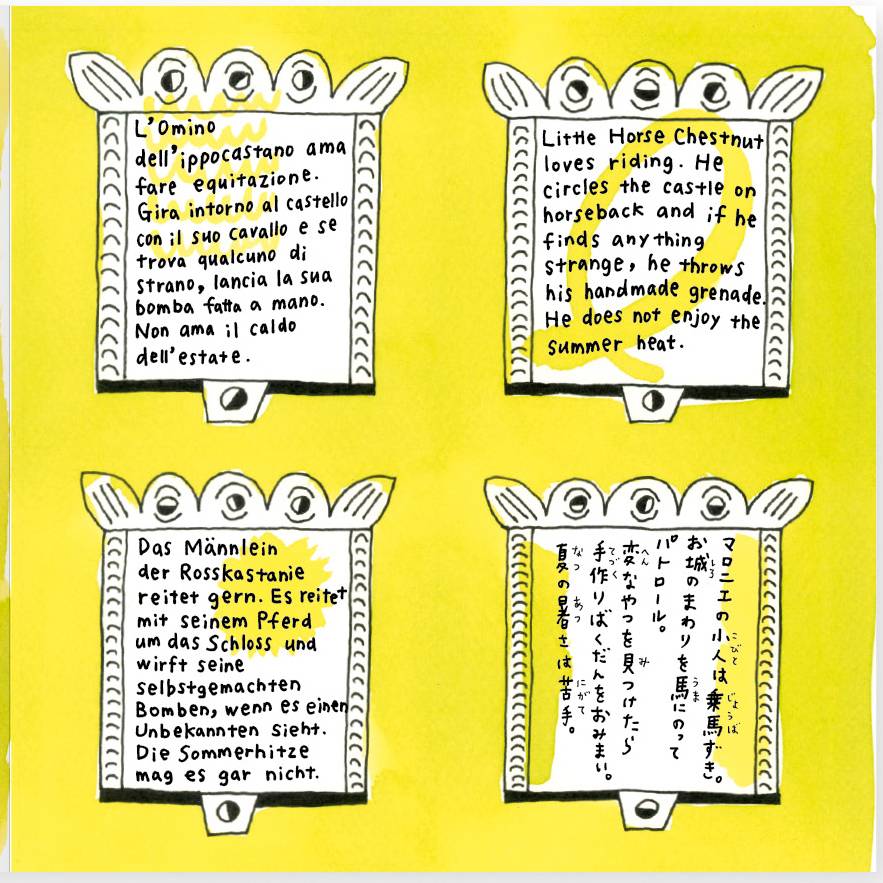 L'Omino
dell'ippocastano ama
fare equitazione.
Gira intorno al castello
con il suo cavallo e se
trova qualcuno di
strano, lancia la sua
bomba fatta a mano.
Non ama il caldo
dell'estate.
Little Horse Chestnut
loves riding. He
circles the castle on
horseback and if he
finds anything
strange, he throws
his handmade grenade.
He does not enjoy the
summer heat.
Das Männlein
der Rosskastanie
reitet gern. Es reitet
mit seinem Pferd
um das Schloss und
wirft seine
selbstgemachten
Bomben, wenn es einen
Unbekannten sieht.
Die Sommerhitze
mag es gar nicht.
マロニエの小人は乗馬ずき。
こびと じょうば
お城のまわりを馬にのって
しろ うま
パトロール。
変なやつを見つけたら
へん み
手作りばくだんをおみまい。
てづく
夏の暑さは苦手。
なつ あつ にがて